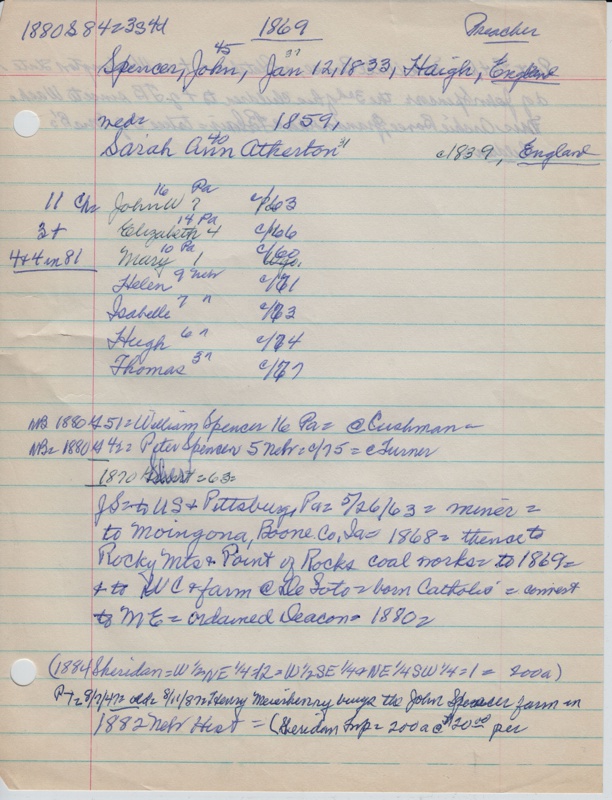 1880 S 84=334d 1869 Preacher
45 37
Spencer, John, Jan 12, 1833, Haigh, England
md= 1859,
40 31
Sarah Ann Atkerton c1839, England
11 Ch= John W 7 16 Pa c/63
3+ Elizabeth 4 14 Pa c/66
4+4 in 81 Mary 1 10 Pa c/60
Helen 9 Nebr c/71
Isabelle 7 " c/63
Hugh 6 " c/74
Thomas 3 " c/77
NB 1880 51= William Spencer 16 Pa= @ Cushman=
NB= 1880 42= Peter Spencer 5 Nebr= c/75= @ Turner
1870 =63=
JS= to US + Pittsburg, Pa= 5/26/63= miner=
to Moingona, Boone Co, Ia= 1868= thence to
Rocky Mts + Point of Rocks coal works= to 1869=
+ to WC + farm @ De Soto= born Catholic= convert
to ME= ordained Deacon= 1880=
(1884 Sheridan= W 1/2 NE 1/4=12= W 1/2 SE 1/4 + NE 1/4 SW 1/4=1= 200a)
PT= 8/11/87= Henry Meierhenry buys the John Spencer farm in
1882 Nebr Hist= (Sheridan Twp= 200a @ $20.00 per